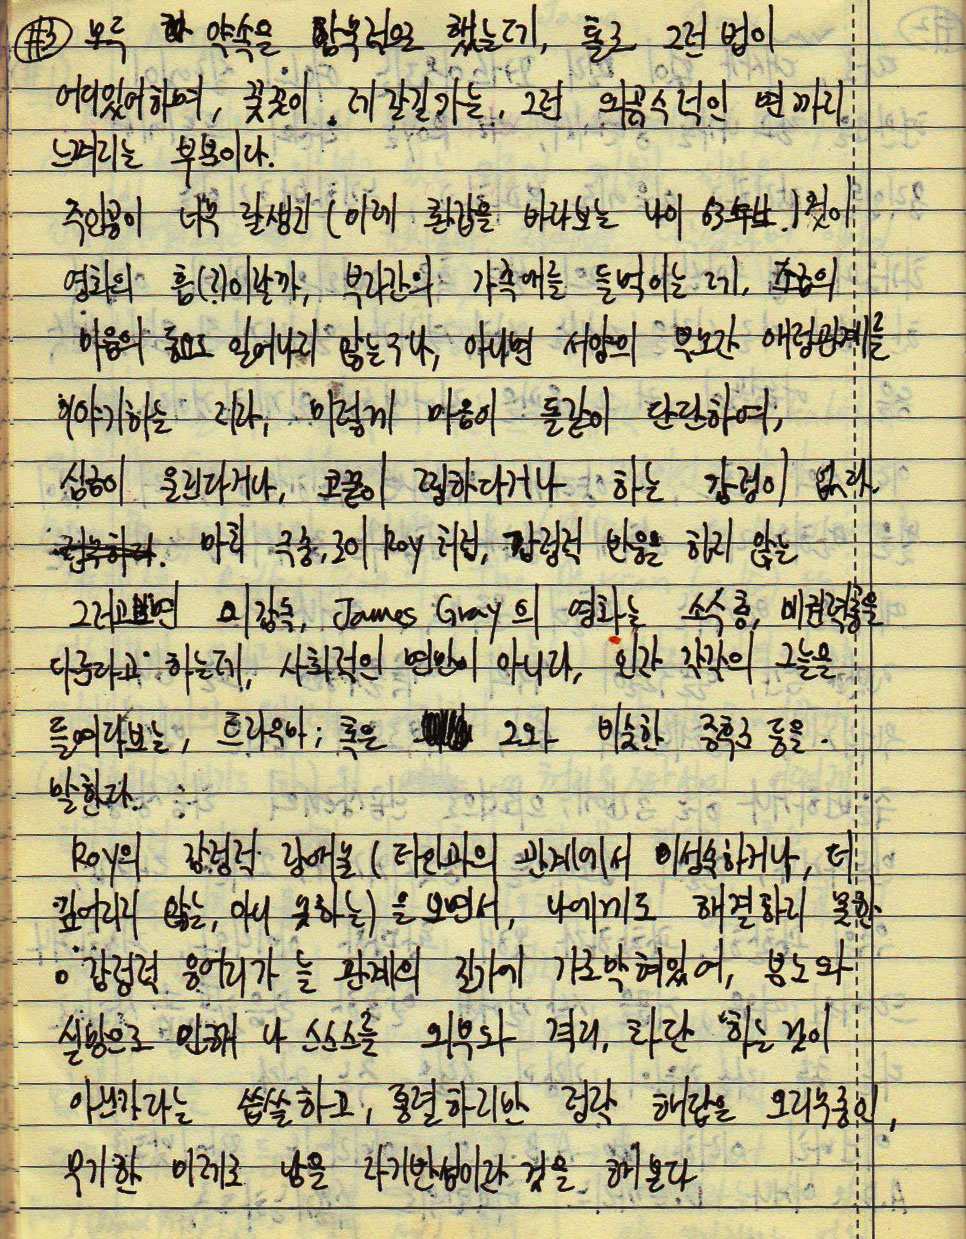 #3 모두 한 약속을 함부러으로 했는데, 홀로 그런 법이
어디있어하며, 꽃꽂이, 제 갈길 가는, 그런 외곬수적인 면까지
느껴지는 부분이다.
주인공이 너무 잘생긴 (이제 환갑을 바라보는 나이 63年生.) 것이
영화의 흠(?)이랄까, 부자간의 가족애를 들먹이는 데, 심금의
마음의 동요도 일어나지 않는구나, 아니면 서양의 부모간 애정관계를
이야기하는 지라, 이렇게 마음이 돌같이 단단하여,
심금이 울린다거나, 코끝이 찡하다거나 하는 감정이 없다.
마치 극중, 의 Roy 처럼, 감정적 반응을 하지 않는
그러고보면 이 감독, James Gray의 영화는 소수층, 비권력층을
다룬다고 하는데, 사회적인 면만이 아니라, 인간 각각의 그늘을
들여다보는, 트라우마; 혹은 그와 비슷한 증후군 등을
말한다.
Roy의 감정적 장애들 (타인과의 관계에서 미성숙하거나, 더
깊어지지 않는, 아니 못하는)을 보면서, 나에게도 해결하지 못한
감정적 응어리가 늘 관계의 진가에 가로막혀있어, 분노와
실망으로 인해 나 스스로를 외부와 격리, 차단 하는 것이
아닌가라는 씁쓸하고, 통렬하지만 정작 해답은 오리무중인,
무기한 미제로 남을 자기반성이라 것을 해본다